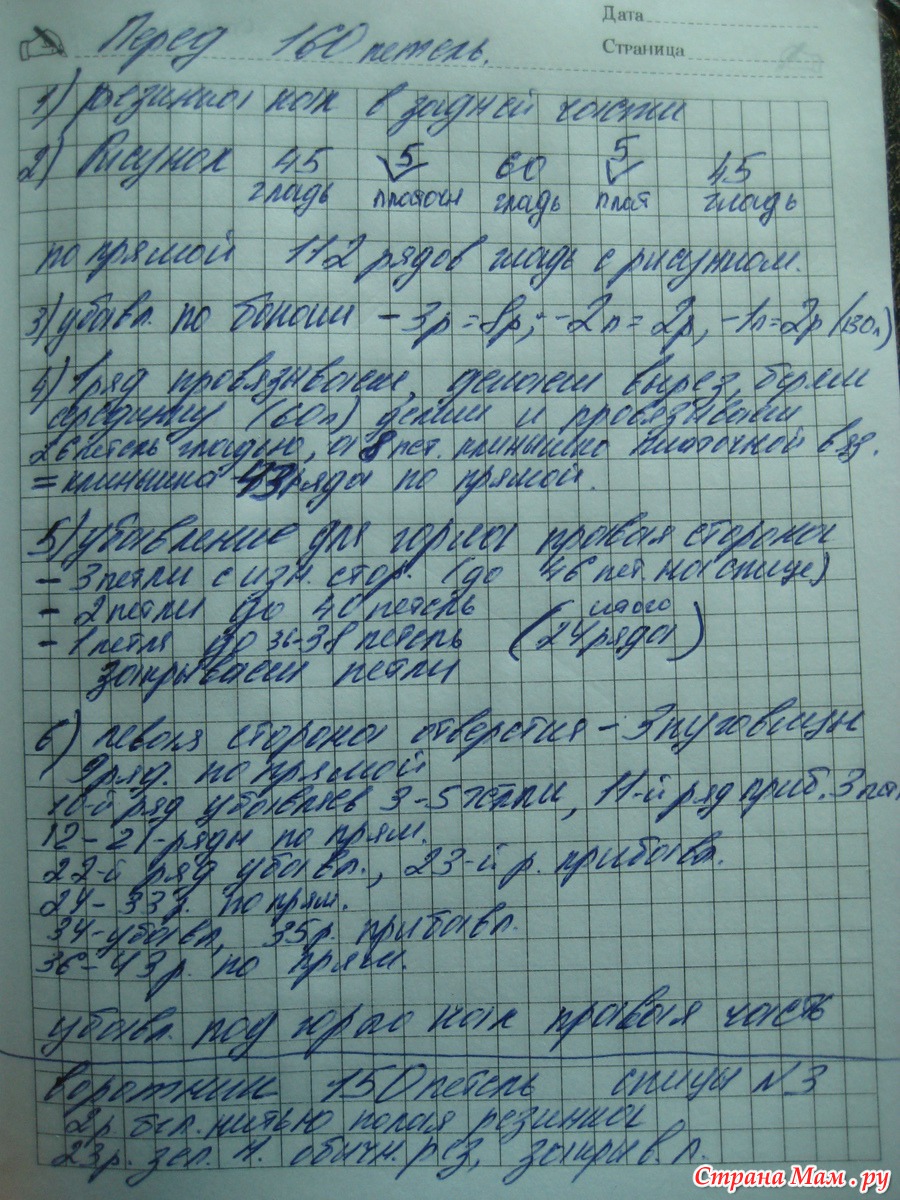 Дата
Страница
Перед 160 петель.
1) резинка как в задней части
2) Рисунок 45 5 60 5 45
гладь платочн гладь плат гладь
по прямой 112 рядов гладь с рисунком.
3) убавл. по бокам - 3р = 8р, - 2п = 2р, - 1п = 2р (130п)
4) 1 ряд провязываем, делаем вырез, берем
серединку (60п) делим и провязываем
26 петель гладью, а 8 пет. клинышко платочной вяз.
= клинышка 43 ряда по прямой.
5) убавление для горла правая сторона
- 3 петли с изн. стор. (до 46 пет. на спице)
- 2 петли до 40 петель (итого
- 1 петля до 36-38 петель 24 ряда)
закрываем петли
6) левая сторона отверстия - 3 пуговицы
9 ряд. по прямой
10-й ряд убавляев 3-5 петли, 11-й ряд приб. 3 пет
12-21-ряды по прям.
22-й ряд убавл., 23-й р. прибавл.
24-33р. по прям.
34-убавл, 35р. прибавл.
36-43 р. по прям.
убавл. под горло как правая часть
воротник 150 петель спицы №3
2р. бел. нитью полая резинка
23р. зел. н. обычн. рез, закрыв. п.
Страна Мам.ру